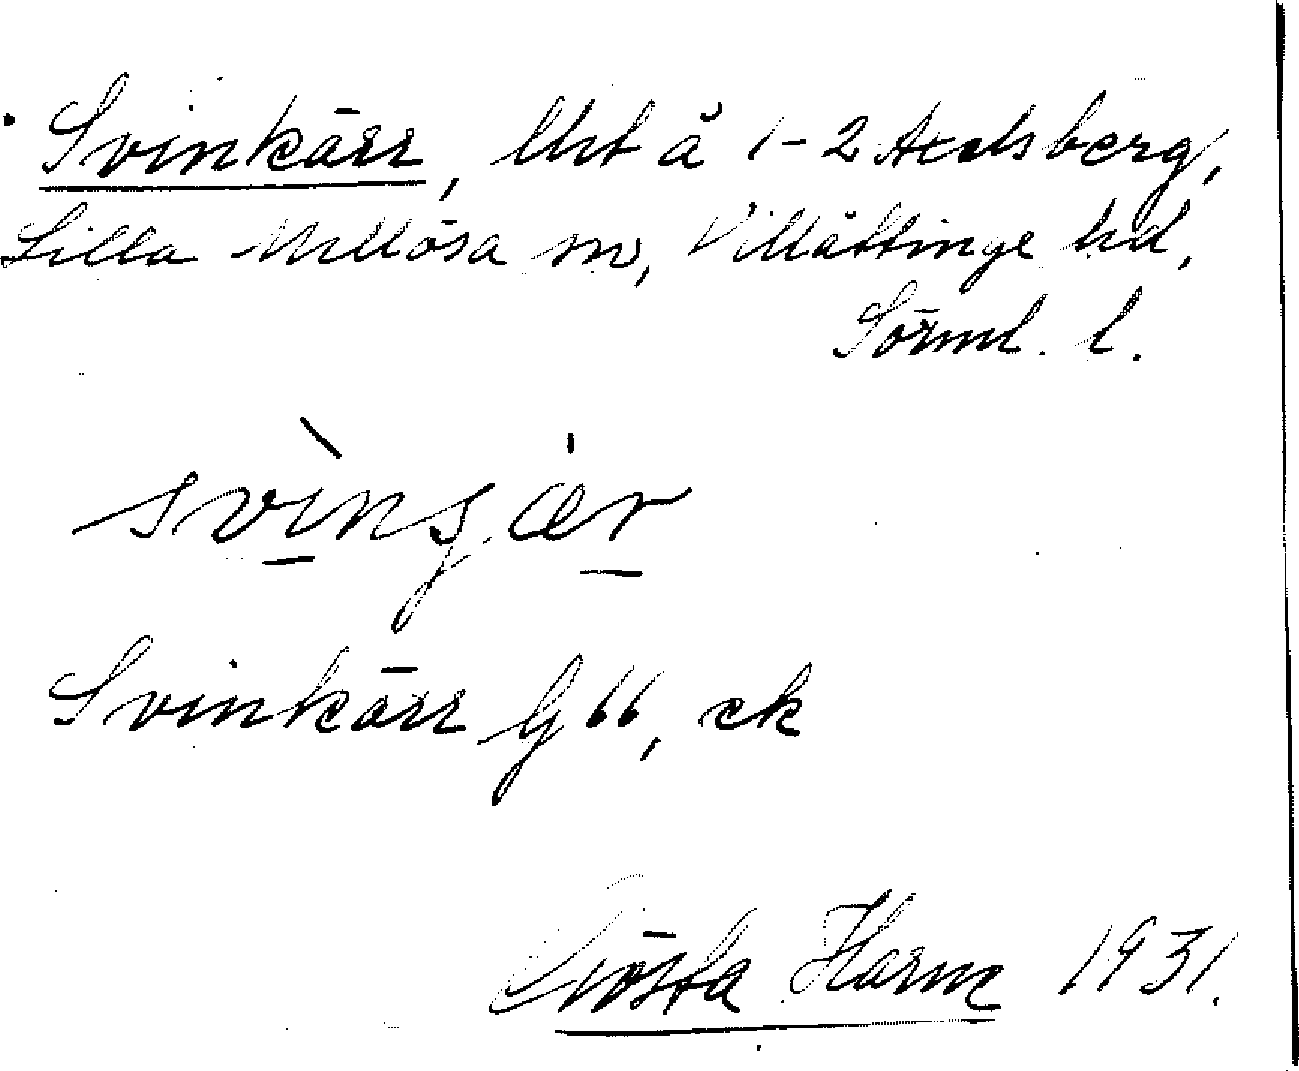 Svinkärr, Utt å 1-2 Axelsberg,
Lilla Mellösa sn, Villåttinge hd,
Sörml. l.
svinjær
Svinkärr G 66, ek
Gösta Harm 1931.